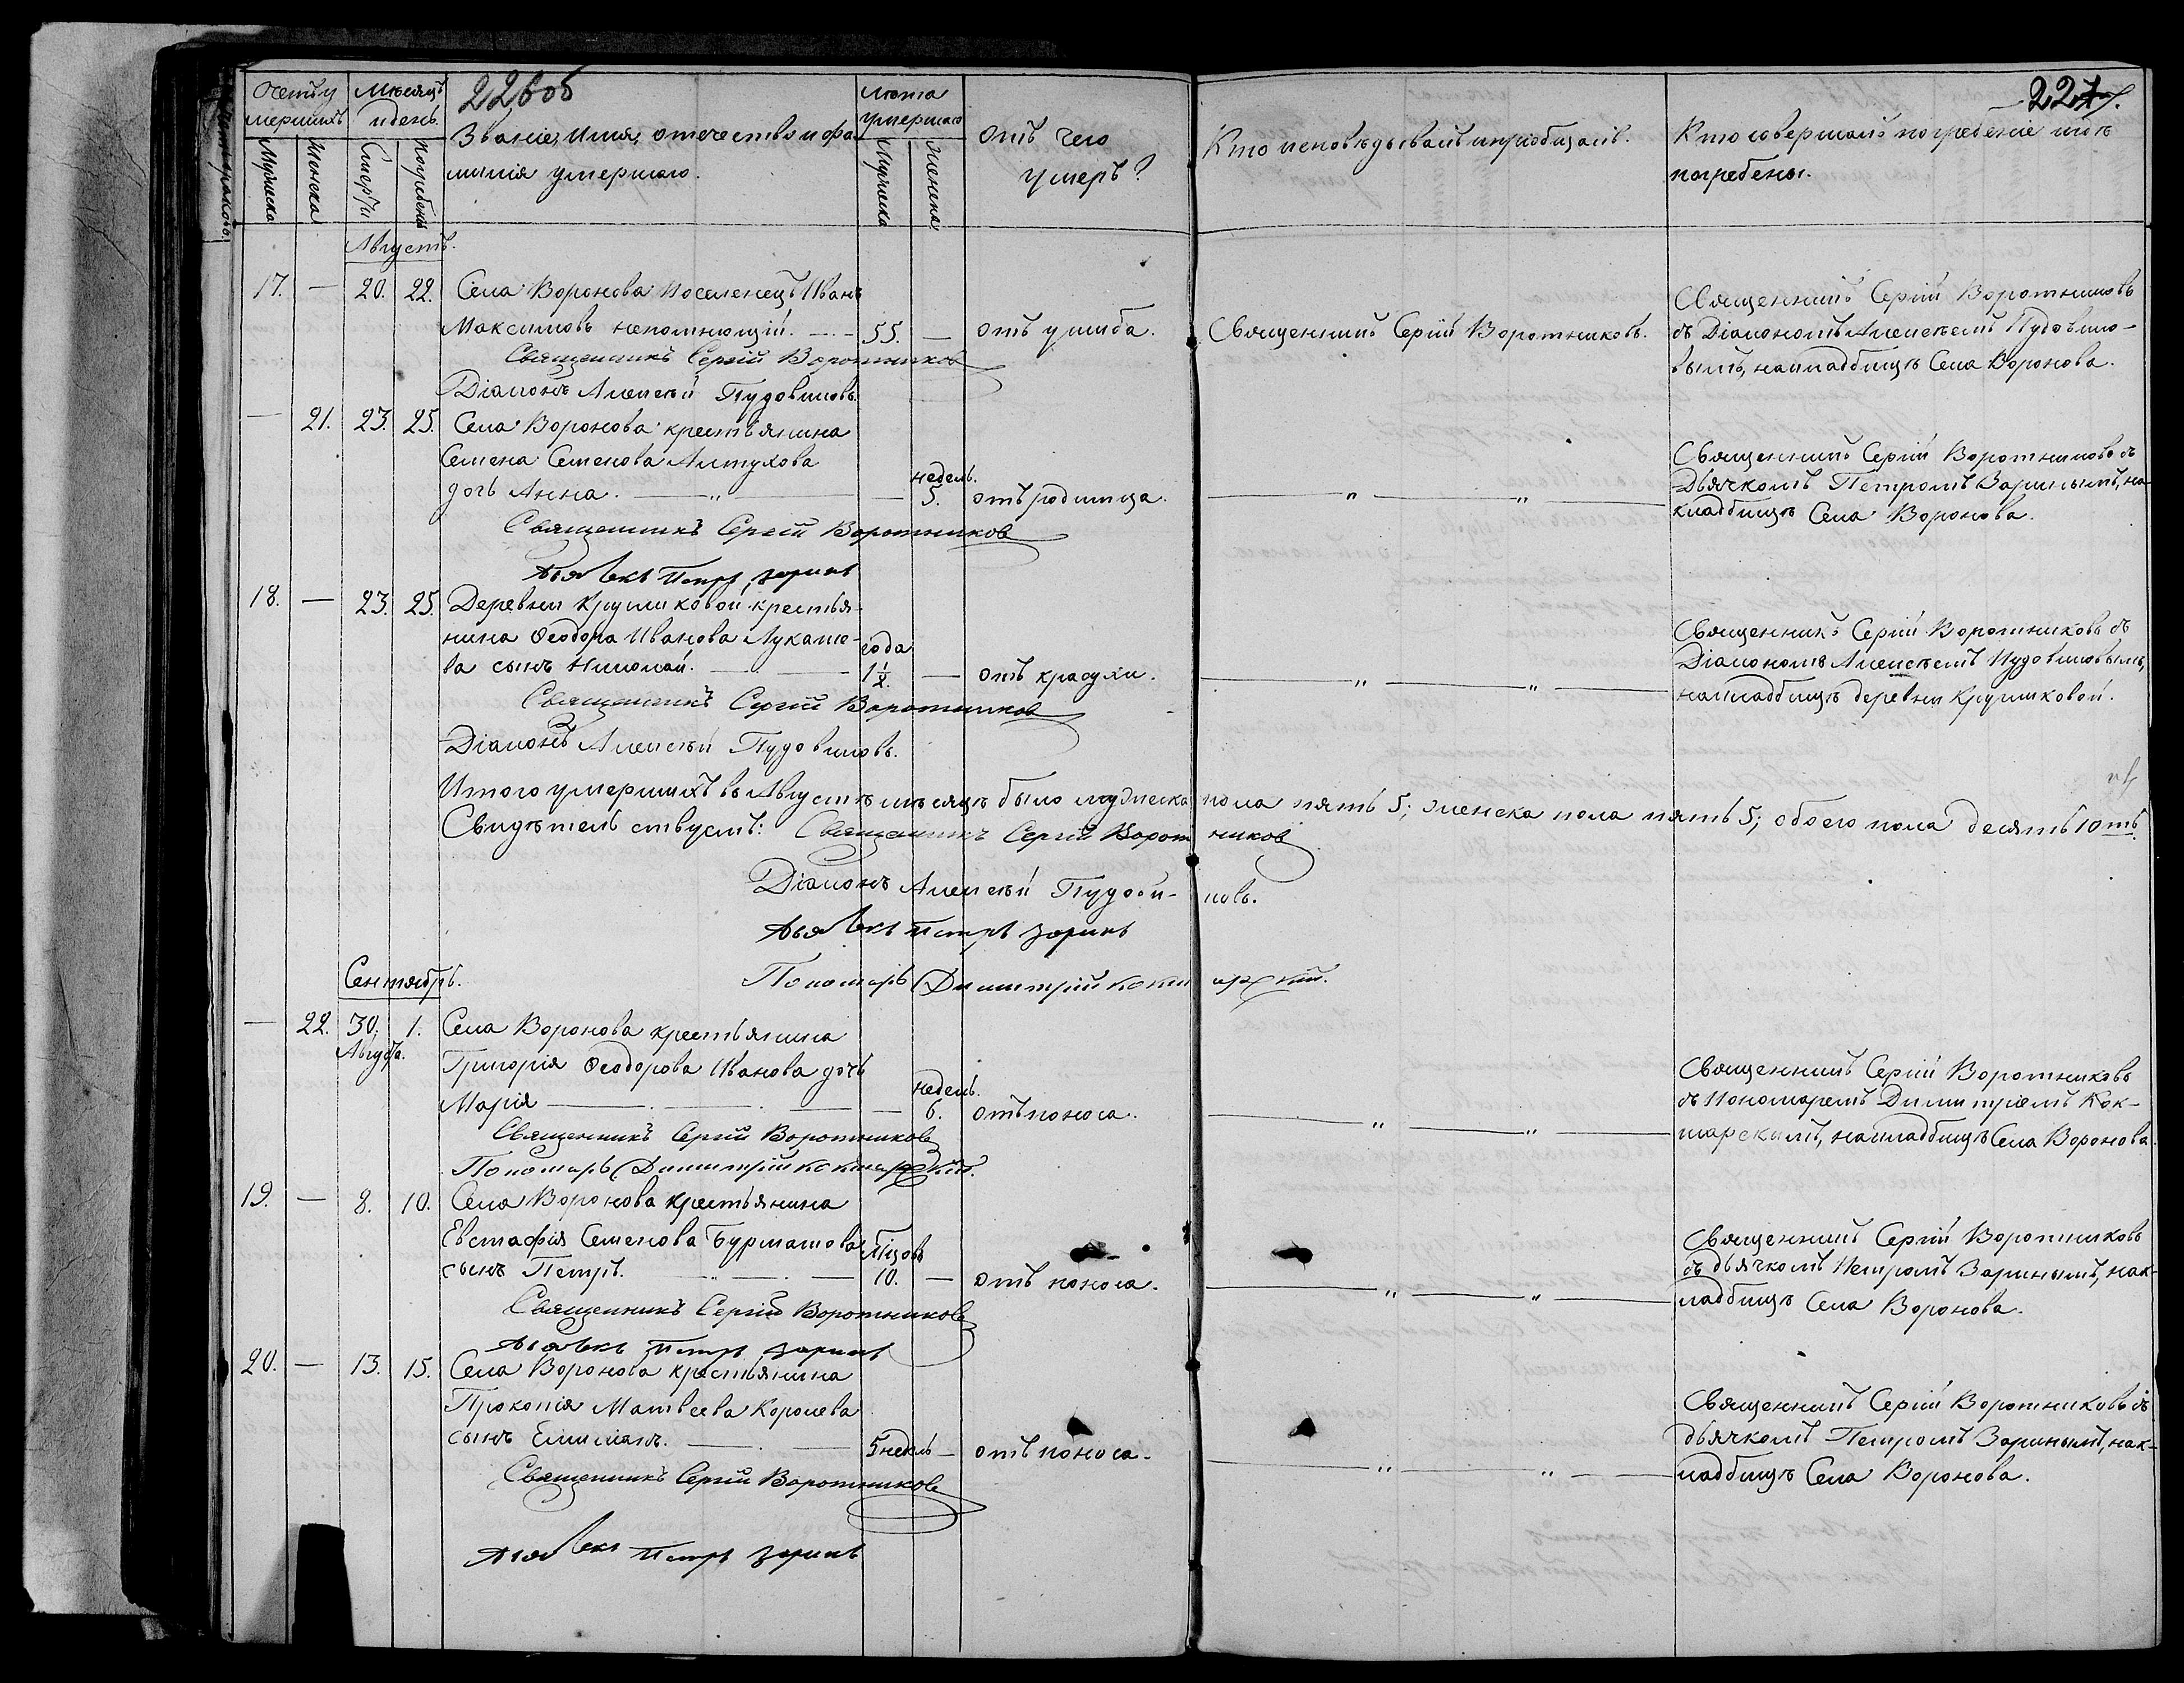 226об
227.
Счетъ умершихъ
Мѣсяцъ и день
Званіе, имя, отечество и фамилія умершаго.
Лѣта умершаго
Отъ чего умеръ?
Кто исповѣдывалъ и пріобщалъ.
Кто совершалъ погребеніе и гдѣ погребены.
Мужеска
Женска
Смерти
погребенія
Мужеска
Женска
Августъ.
17. — 20. 22. Села Воронова Поселенецъ Иванъ
Максимовъ непомнющій. — 55. — отъ ушиба. Священникъ Сергій Воротниковъ.
Священникъ Сергій Воротниковъ
съ Діакономъ Алексѣемъ Пудовико-
вымъ, на кладбищѣ Села Воронова.
Священникъ Сергій Воротников
Діаконъ Алексѣй Пудовиковъ.
— 21. 23. 25. Села Воронова крестьянина
Семена Семенова Алтухова
дочь Анна. — " — — недель. 5. отъ родимца. — " — " —
Священникъ Сергій Воротниковъ съ
Дьячкомъ Петромъ Заринымъ, на
кладбищѣ Села Воронова.
Священникъ Сергій Воротников
Дьячекъ Петръ Заринъ
18. — 23. 25. Деревни Кругликовой крестья-
нина Феодора Иванова Лукаше-
ва сынъ Николай. — года 1½. — отъ краснухи. — " — " —
Священникъ Сергій Воротниковъ съ
Діакономъ Алексѣемъ Пудовиковымъ,
на кладбищѣ деревни Кругликовой.
Священникъ Сергій Воротников
Діаконъ Алексѣй Пудовиковъ.
Итого умершихъ въ Августѣ мѣсяцѣ было мужеска пола пять 5; женска пола пять 5; обоего пола десять 10ть.
Свидѣтельствуемъ: Священникъ Сергій Воротников
Діаконъ Алексѣй Пудовиковъ.
Дьячекъ Петръ Заринъ
Пономарь Димитрій Кокшарский.
Сентябрь.
— 22. 30. Авгуса. 1. Села Воронова крестьянина
Григорія Феодорова Иванова дочь
Марія — — недель. 6. отъ поноса. — " — " —
Священникъ Сергій Воротниковъ
съ Пономаремъ Димитріемъ Кок-
шарскимъ, на кладбищѣ Села Воронова.
Священникъ Сергій Воротников
Пономарь Димитрій Кокшарский.
19. — 8. 10. Села Воронова крестьянина
Евстафія Семенова Бурмашова
сынъ Петръ. — 10. — отъ поноса. — " — " —
Священникъ Сергій Воротниковъ
съ дьячкомъ Петромъ Заринымъ, нак-
ладбищѣ Села Воронова.
Священникъ Сергій Воротников
Дьячекъ Петръ Заринъ
20. — 13. 15. Села Воронова крестьянина
Прокопія Матвеева Королева
сынъ Емиліанъ. — 5 недель — отъ поноса. — " — " —
Священникъ Сергій Воротниковъ съ
дьячкомъ Петромъ Заринымъ, нак-
ладбищѣ Села Воронова.
Священникъ Сергій Воротников
Дьячекъ Петръ Заринъ